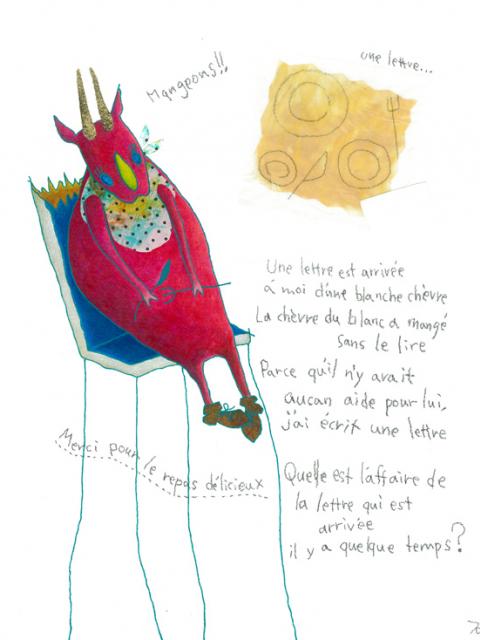 Mangeons!!
une lettre...
Une lettre est arrivée
à moi d'une blanche chèvre
La chèvre du blanc a mangé
sans le lire
Parce qu'il n'y avait
aucan aide pour lui,
j'ai écrit une lettre
Merci pour le repas délicieux
Quelle est l'affaire de
la lettre qui est
arrivée
il y a quelque temps?